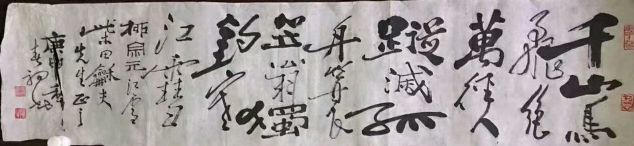 千山鳥
飛絕
萬徑人
蹤滅孤
舟蓑
笠翁獨
釣寒
江雪
柳宗元江雪
柴田龢夫
先生正之
庚申